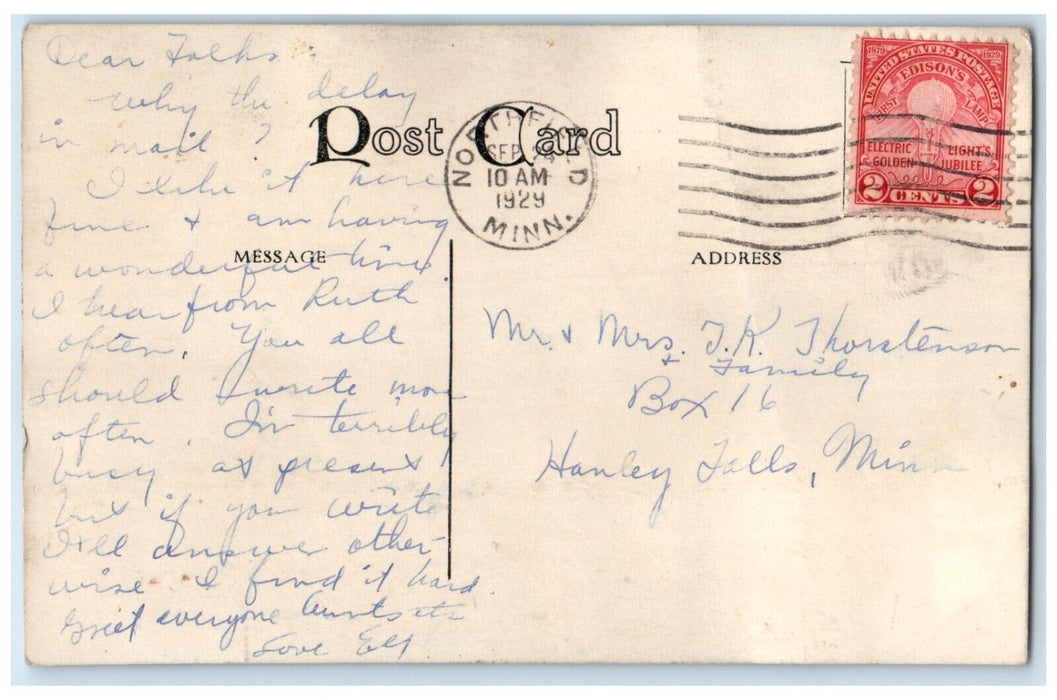 Dear Folks:
Why the delay
in mail?
I like it here
fine & am having
a wonderful time.
I hear from Ruth
often. You all
should write more
often. I'm terribly
busy at present
but if you write
I'll answer other-
wise I find it hard.
Greet everyone Aunts etc
Love
Post Card
MESSAGE
NORTHFIELD
SEP
10 AM
1929
MINN.
1879 UNITED STATES POSTAGE 1929
EDISON'S
FIRST LAMP
ELECTRIC LIGHT'S
GOLDEN JUBILEE
2 CENTS 2
ADDRESS
Mr. & Mrs. T. K. Thorstenson
& Family
Box 16
Hanley Falls, Minn